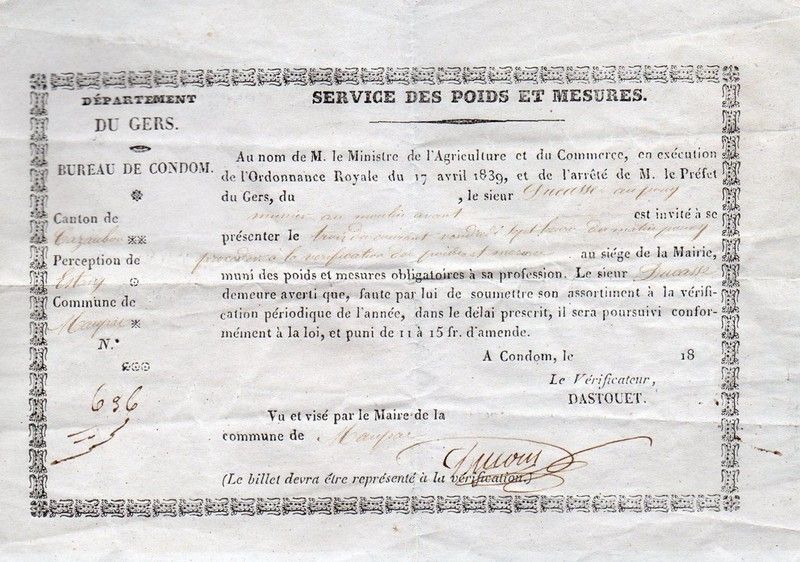 DÉPARTEMENT
DU GERS.
BUREAU DE CONDOM.
Canton de
Cazaubon
Perception de
Estang
Commune de
Maupas
N.°
636
SERVICE DES POIDS ET MESURES.
Au nom de M. le Ministre de l'Agriculture et du Commerce, en exécution
de l'Ordonnance Royale du 17 avril 1839, et de l'arrêté de M. le Préfet
du Gers, du , le sieur Ducasse au
meunier au moulin est invité à se
présenter le trois du courant vendredi sept heures du matin pour
procéder à la vérification des poids et mesures au siége de la Mairie,
muni des poids et mesures obligatoires à sa profession. Le sieur Ducasse
demeure averti que, faute par lui de soumettre son assortiment à la vérifi-
cation périodique de l'année, dans le délai prescrit, il sera poursuivi confor-
mément à la loi, et puni de 11 à 15 fr. d'amende.
A Condom, le 18
Le Vérificateur,
DASTOUET.
Vu et visé par le Maire de la
commune de Maupas
(Le billet devra être représenté à la vérification.)